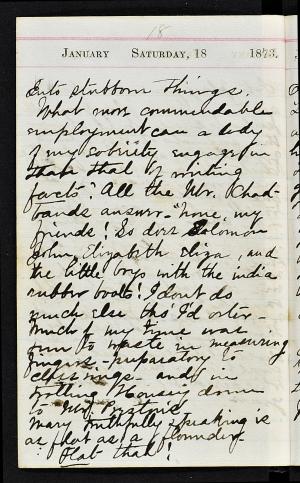 18
JANUARY SATURDAY, 18 1873.
Into stubborn things.
What more commendable
employment can a lady
of my sobriety engage in
than that of writing
facts? All the Mr. Chad-
bands answer "None, my
friends! So does Solomon
John, Elizabeth Eliza, and
the little boys with the india
rubber boots! I dont do
much else tho' I'd orter -
Much of my time was
run to waste in measuring
fingers - preparatory to
rings - and in
trotting Mousey down
to Mrs.
Mary truthfully speaking is
as flat as a flounder -
Flat that!